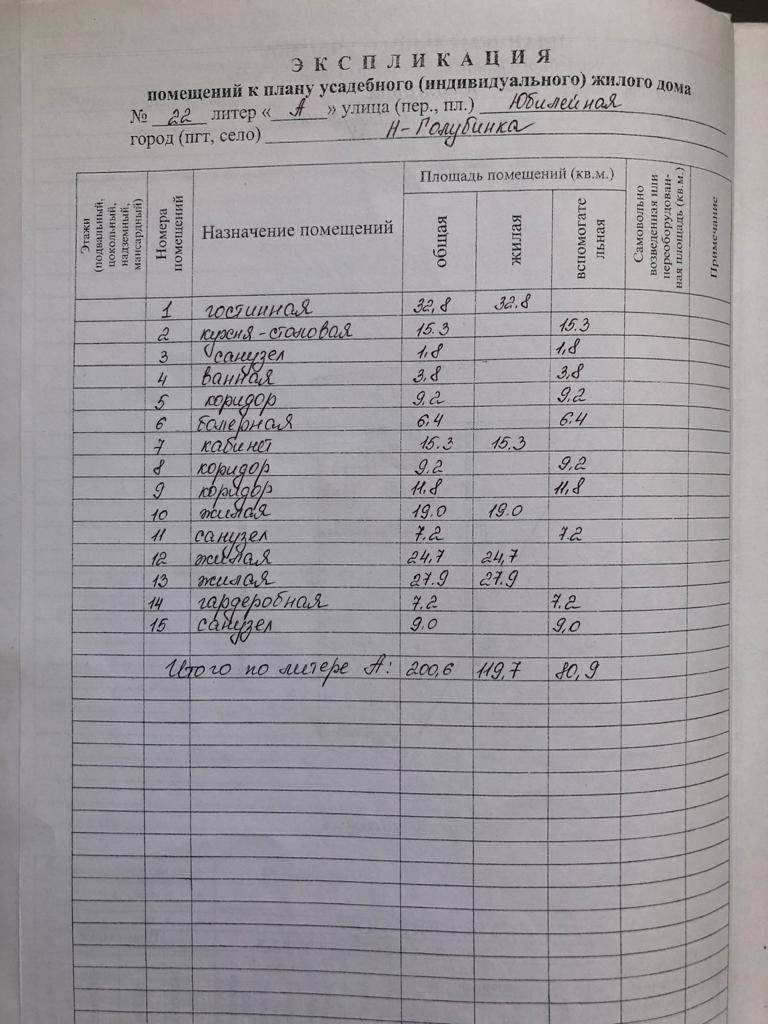 ЭКСПЛИКАЦИЯ
помещений к плану усадебного (индивидуального) жилого дома
№ 22 литер « А » улица (пер., пл.) Юбилейная
город (пгт, село) Н-Голубинка
Этажи (подвальный, цокольный, надземный, мансардный) Номера помещений Назначение помещений Площадь помещений (кв.м.) Самовольно возведенная или переоборудованная площадь (кв.м.) Примечание
общая жилая вспомогательная
1 гостинная 32,8 32.8
2 кухня-столовая 15.3 15.3
3 санузел 1,8 1,8
4 ванная 3,8 3,8
5 коридор 9.2 9.2
6 болерная 6.4 6.4
7 кабинет 15.3 15.3
8 коридор 9.2 9,2
9 коридор 11.8 11,8
10 жилая 19.0 19.0
11 санузел 7.2 7.2
12 жилая 24,7 24,7
13 жилая 27.9 27.9
14 гардеробная 7.2 7.2
15 санузел 9.0 9,0
Итого по литере А: 200,6 119,7 80,9